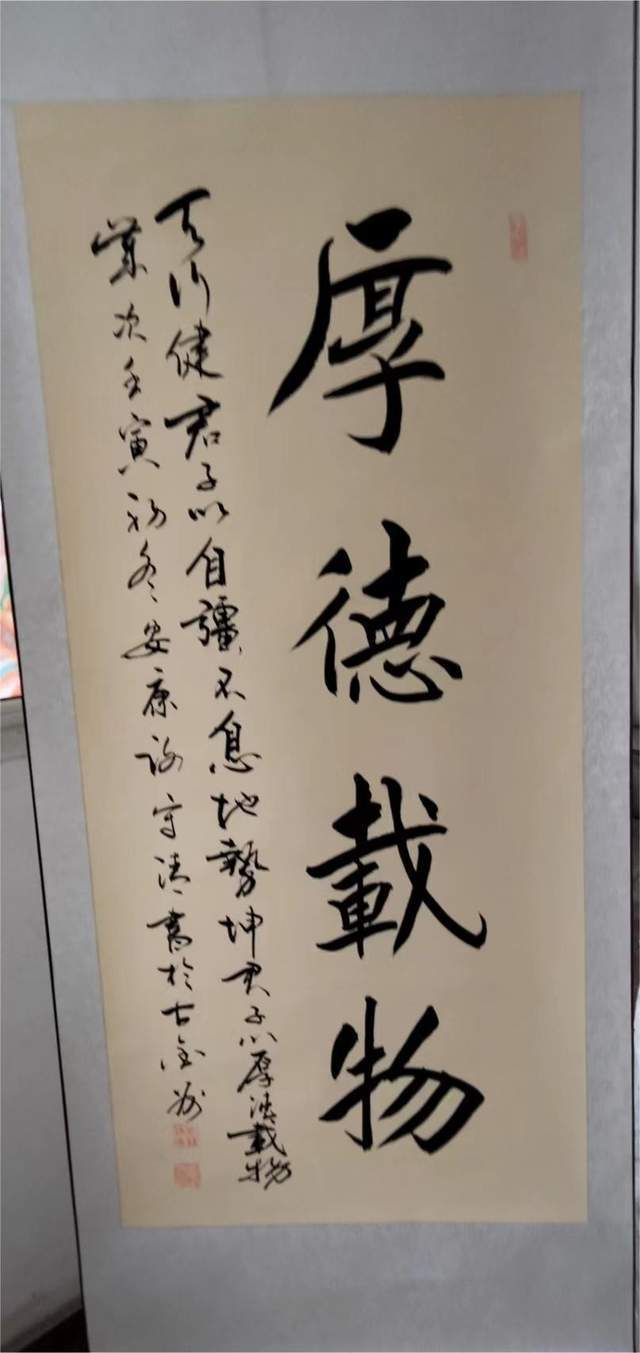 厚德载物
天行健君子以自彊不息地势坤君子以厚德载物
岁次壬寅初冬安康 守清书於古金州